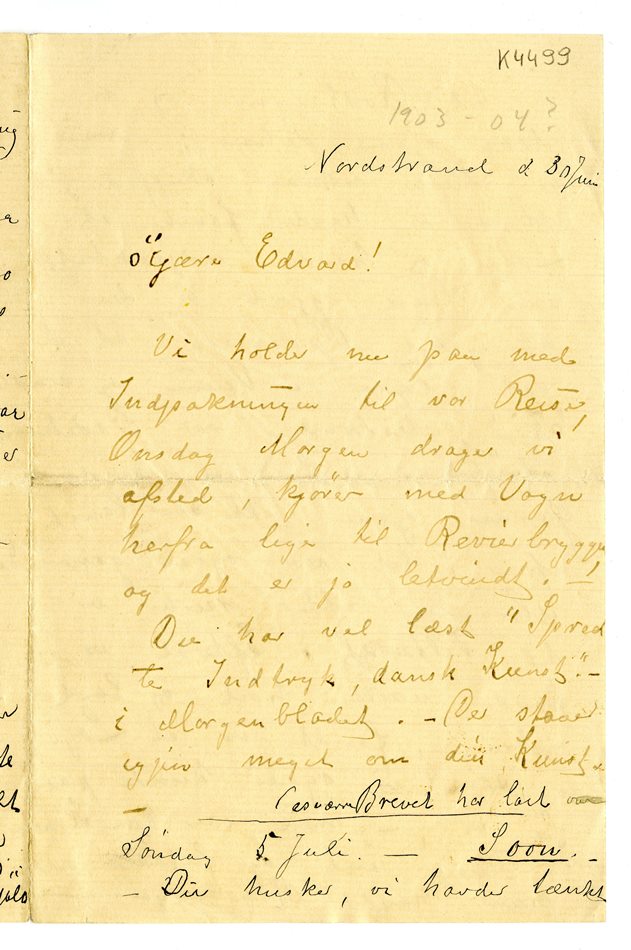 K4499
1903-04?
Nordstrand d 30 Juni
Kjære Edvard!
Vi holder nu paa med
Indpakningen til vor Reise,
Onsdag Morgen drager vi
afsted, kjörer med Vogn
herfra lige til Revierbryggen
og det er jo letvindt. -!
Du har vel læst "Spred
te Indtryk, dansk Kunst" -
i Morgenbladet. - Der staaer
igjen meget om din Kunst.
- Brevet har lagt
Söndag 5 Juli. - Soon. -
- Du husker, vi havde tænkt